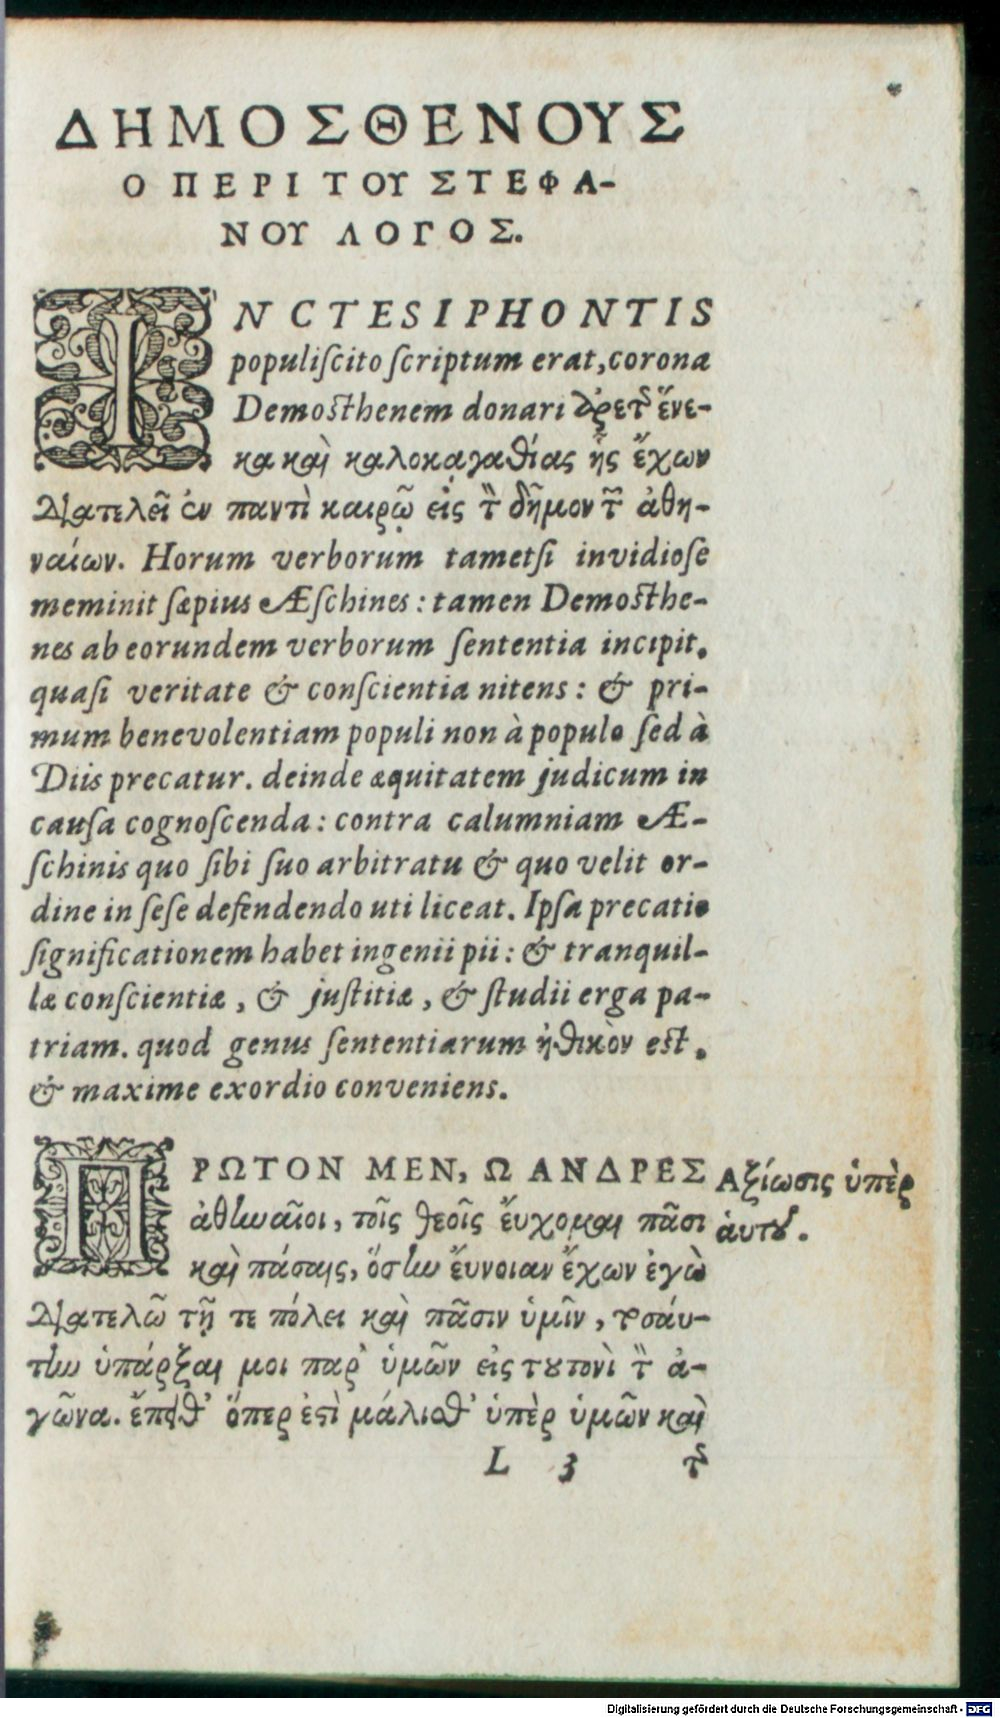 ΔΗΜΟΣΘΕΝΟΥΣ
Ο ΠΕΡΙ ΤΟΥ ΣΤΕΦΑ-
ΝΟΥ ΛΟΓΟΣ.
IN CTESIPHONTIS
populiſcito ſcriptum erat, corona
Demoſthenem donari ἀρετῆς ἕνε-
κα καὶ καλοκαγαθίας ἧς ἔχων
διατελεῖ ἐν παντὶ καιρῷ εἰς τὸν δῆμον τῶν ἀθη-
ναίων. Horum verborum tametſi invidioſe
meminit ſæpius Æſchines: tamen Demoſthe-
nes ab eorundem verborum ſententia incipit.
quaſi veritate & conſcientia nitens: & pri-
mum benevolentiam populi non à populo ſed à
Diis precatur. deinde æquitatem judicum in
cauſa cognoſcenda: contra calumniam Æ-
ſchinis quo ſibi ſuo arbitratu & quo velit or-
dine in ſeſe defendendo uti liceat. Ipſa precatio
ſignificationem habet ingenii pii: & tranquil-
læ conſcientiæ, & juſtitiæ, & ſtudii erga pa-
triam. quod genus ſententiarum ἠθικὸν eſt.
& maxime exordio conveniens.
ΠΡΩΤΟΝ ΜΕΝ, Ω ΑΝΔΡΕΣ
ἀθηναῖοι, τοῖς θεοῖς ἔυχομαι πᾶσι
καὶ πάσαις, ὅσην ἔυνοιαν ἔχων ἐγὼ
διατελῶ τῇ τε πόλει καὶ πᾶσιν ὑμῖν, τοσάυ-
την ὑπάρξαι μοι παρ' ὑμῶν εἰς τουτονὶ τὸν ἀ-
γῶνα. ἔπειθ' ὅπερ ἐστὶ μάλισθ' ὑπὲρ ὑμῶν καὶ
Αξίωσις ὑπὲρ
ἁυτοῦ.
L 3 τῆς
Digitalisierung gefördert durch die Deutsche Forschungsgemeinschaft - DFG